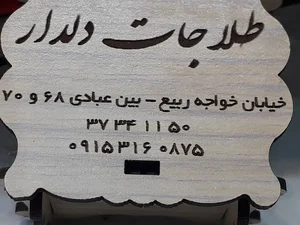 طلاجات دلدار
خیابان خواجه ربیع - بین عبادی ۶۸ و ۷۰
۳۷ ۳۴ ۱۱ ۵۰
۰۹۱۵ ۳۱۶ ۰۸۷۵